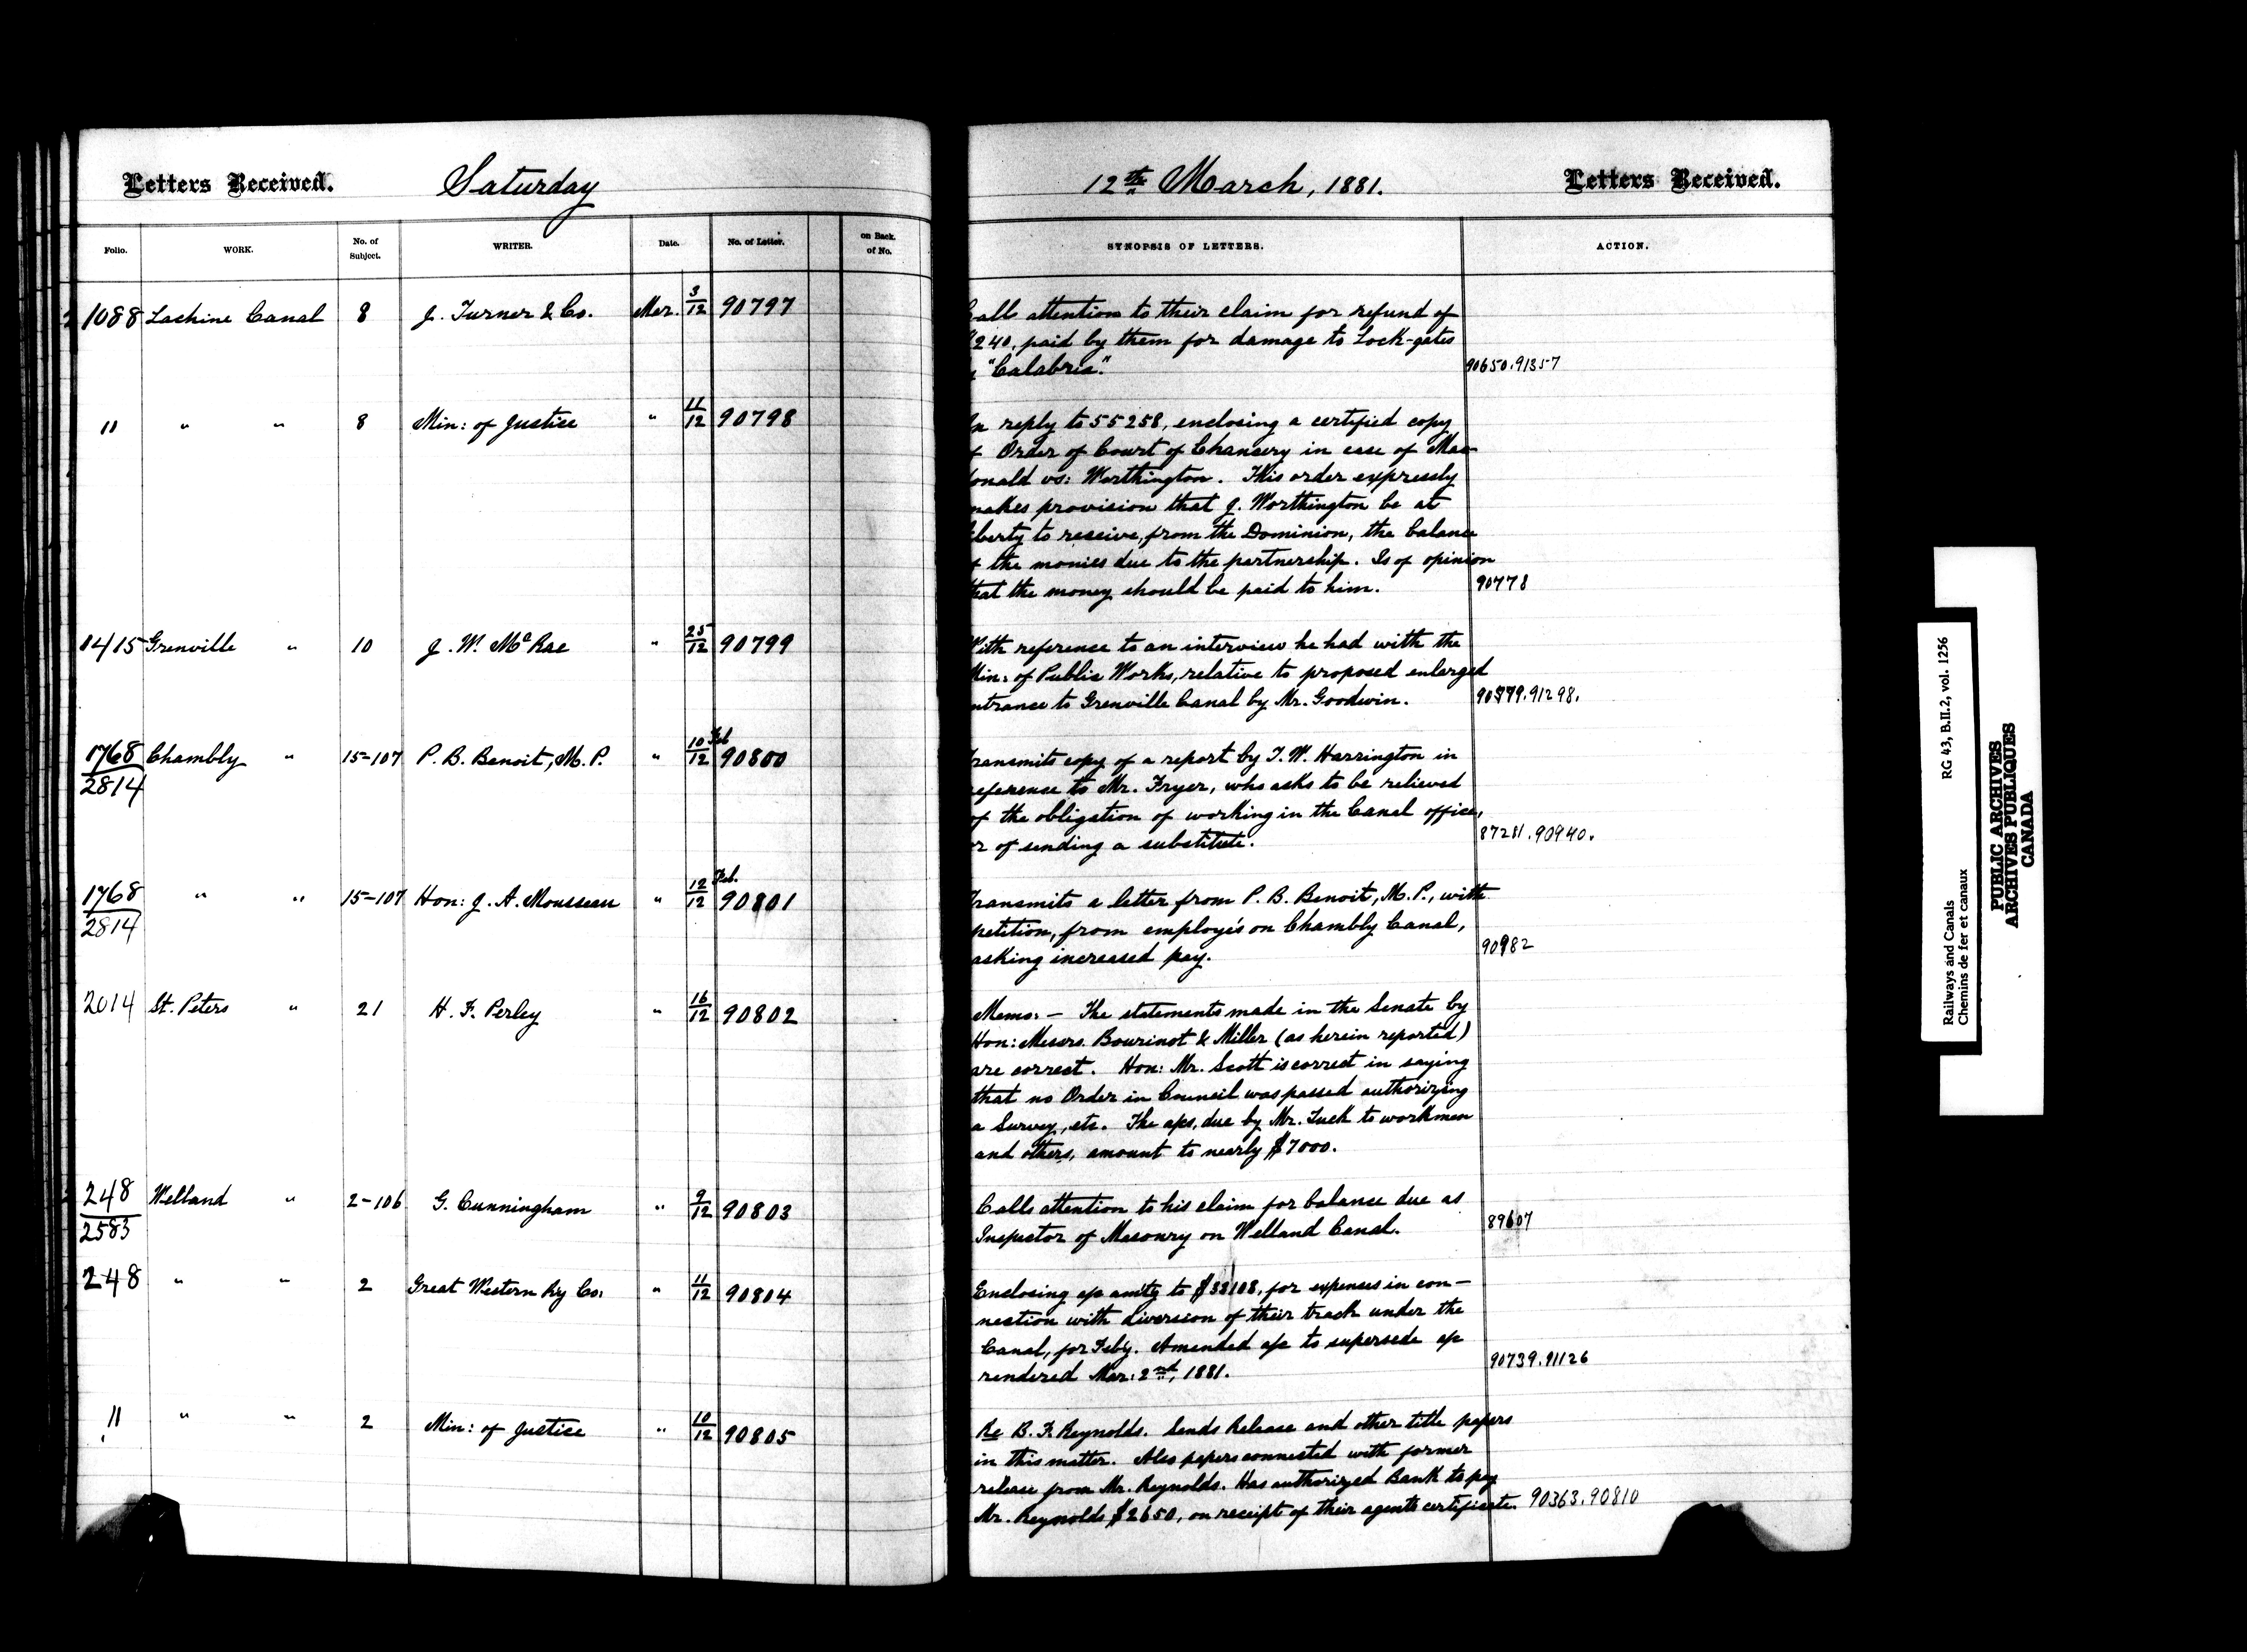 Letters Received.
Saturday
12th March, 1881.
Letters Received.
Folio.
WORK.
No. of Subject.
WRITER.
Date.
No. of Letter.
on Back of No.
SYNOPSIS OF LETTERS.
ACTION.
1088 Lachine Canal 8 J. Turner & Co. Mar. 3/12 90797
Calls attention to their claim for refund of
$240, paid by them for damage to Lock-gates
"Calabria".
90650.91357
" " " 8 Min: of Justice " 11/12 90798
In reply to 55258, enclosing a certified copy
of Order of Court of Chancery in case of Mac
donald vs: Worthington. This order expressly
makes provision that J. Worthington be at
liberty to receive, from the Dominion, the balance
of the monies due to the partnership. Is of opinion
that the money should be paid to him.
90778
1415 Grenville " 10 J. W. McRae " 25/12 90799
With reference to an interview he had with the
Min: of Public Works, relative to proposed enlarged
entrance to Grenville Canal by Mr. Goodwin.
91298.
1768/2814 Chambly " 15-107 P. B. Benoit, M. P. " 10/12 Feb 90800
Transmits copy of a report by T. W. Harrington in
reference to Mr. Fryer, who asks to be relieved
of the obligation of working in the Canal office,
or of sending a substitute.
87281.90940.
1768/2814 " " 15-107 Hon: J. A. Mousseau " 12/12 Feb. 90801
Transmits a letter from P. B. Benoit, M. P., with
petition, from employés on Chambly Canal,
asking increased pay.
90982
2014 St. Peters " 21 H. F. Perley " 16/12 90802
Memo: — The statements made in the Senate by
Hon: Messrs. Bourinot & Miller (as herein reported)
are correct. Hon: Mr. Scott is correct in saying
that no Order in Council was passed authorizing
a Survey, etc. The a/cs, due by Mr. Tuck to workmen
and others, amount to nearly $7000.
248/2583 Welland " 2-106 G. Cunningham " 9/12 90803
Calls attention to his claim for balance due as
Inspector of Masonry on Welland Canal.
89607
248 " " 2 Great Western Ry Co: " 11/12 90804
Enclosing a/c amtg to $33108, for expenses in con-
nection with diversion of their track under the
Canal, for Feby. Amended a/c to supersede a/c
rendered Mar: 2nd, 1881.
90739.91126
" " " 2 Min: of Justice " 10/12 90805
Re B. F. Reynolds. Sends Release and other title papers
in this matter. Also papers connected with former
release from Mr. Reynolds. Has authorized Bank to pay
Mr. Reynolds $2650, on receipt of their agents certificate.
90363.90810
Railways and Canals RG 43, B.II.2, vol. 1256
Chemins de fer et canaux
PUBLIC ARCHIVES
ARCHIVES PUBLIQUES
CANADA